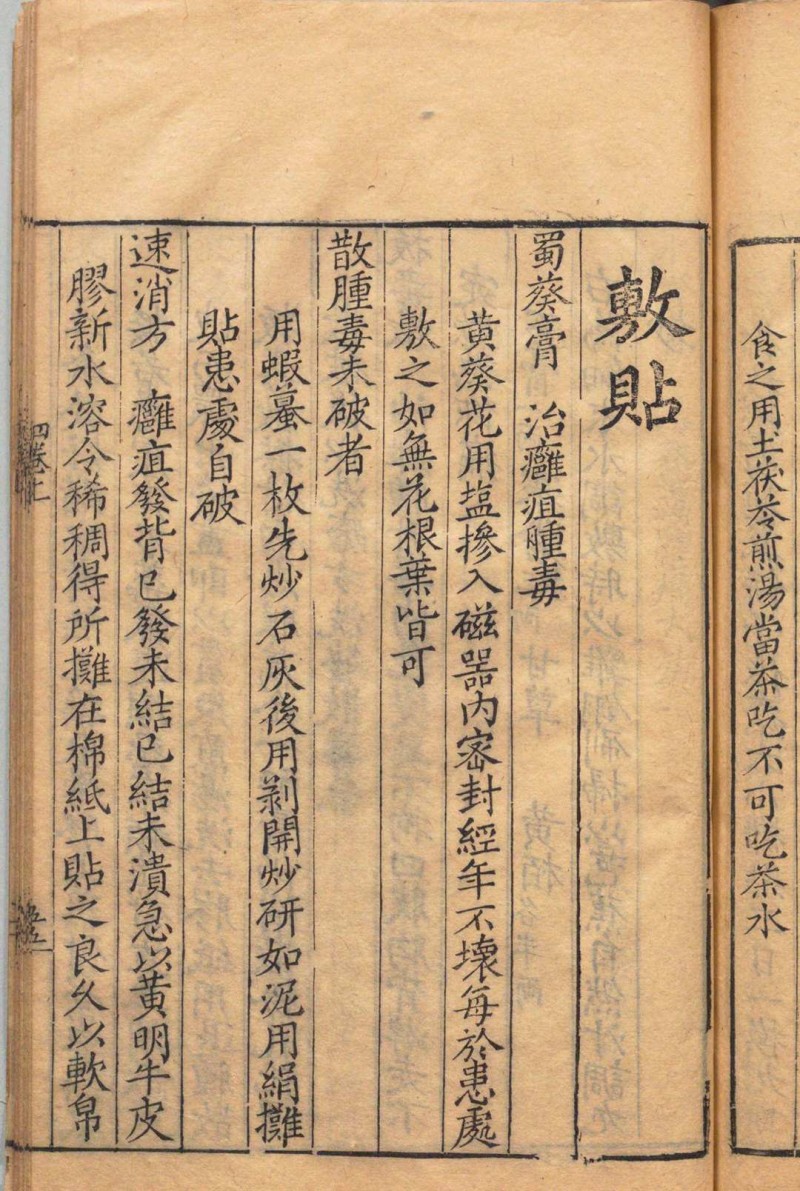 食之用土茯苓煎湯當茶吃不可吃茶水
敷貼
蜀葵膏　治癰疽腫毒
黃葵花用塩摻入磁噐內密封經年不壞每於患處
敷之如無花根葉皆可
散腫毒未破者
用蝦蟇一枚先炒石灰後用剥開炒研如泥用絹攤
貼患處自破
速消方　癰疽發背已發未結已結未潰急以黃明牛皮
膠新水溶令稀稠得所攤在棉紙上貼之良久以軟帛
四卷上